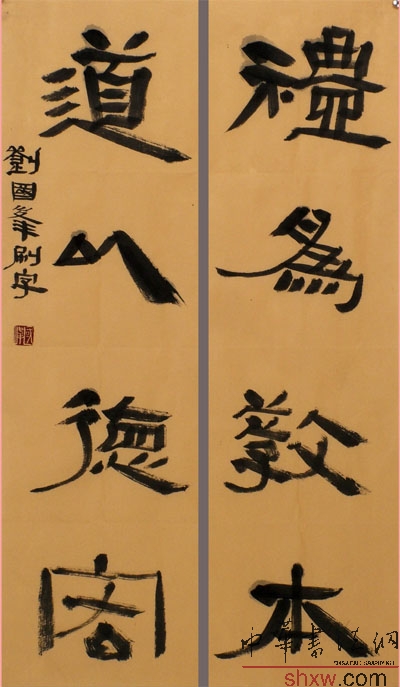 禮為教本
道以德
劉國夆刷字
中華書法網
shxw.com